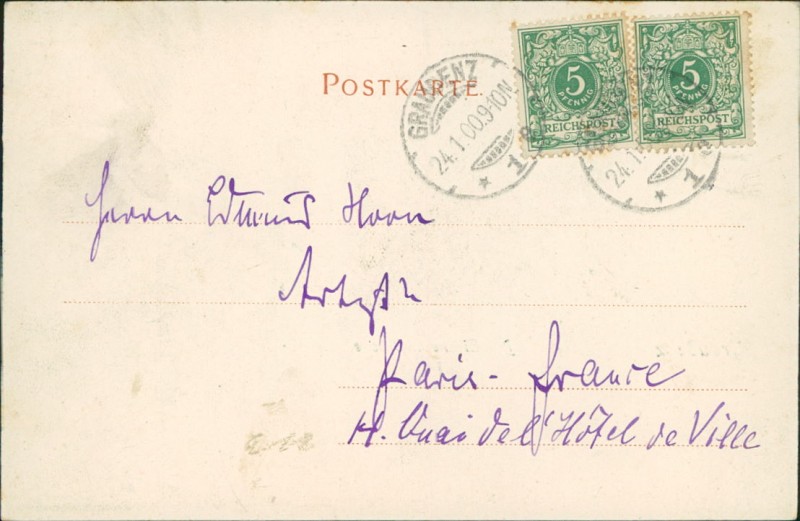 POSTKARTE.
GRAUDENZ
24.1.00.9-10N.
* 1
5
PFENNIG
REICHSPOST
5
PFENNIG
REICHSPOST
24.1
* 1
Herrn Edmund Horn
Paris - France
14. Quai de l'Hôtel de Ville